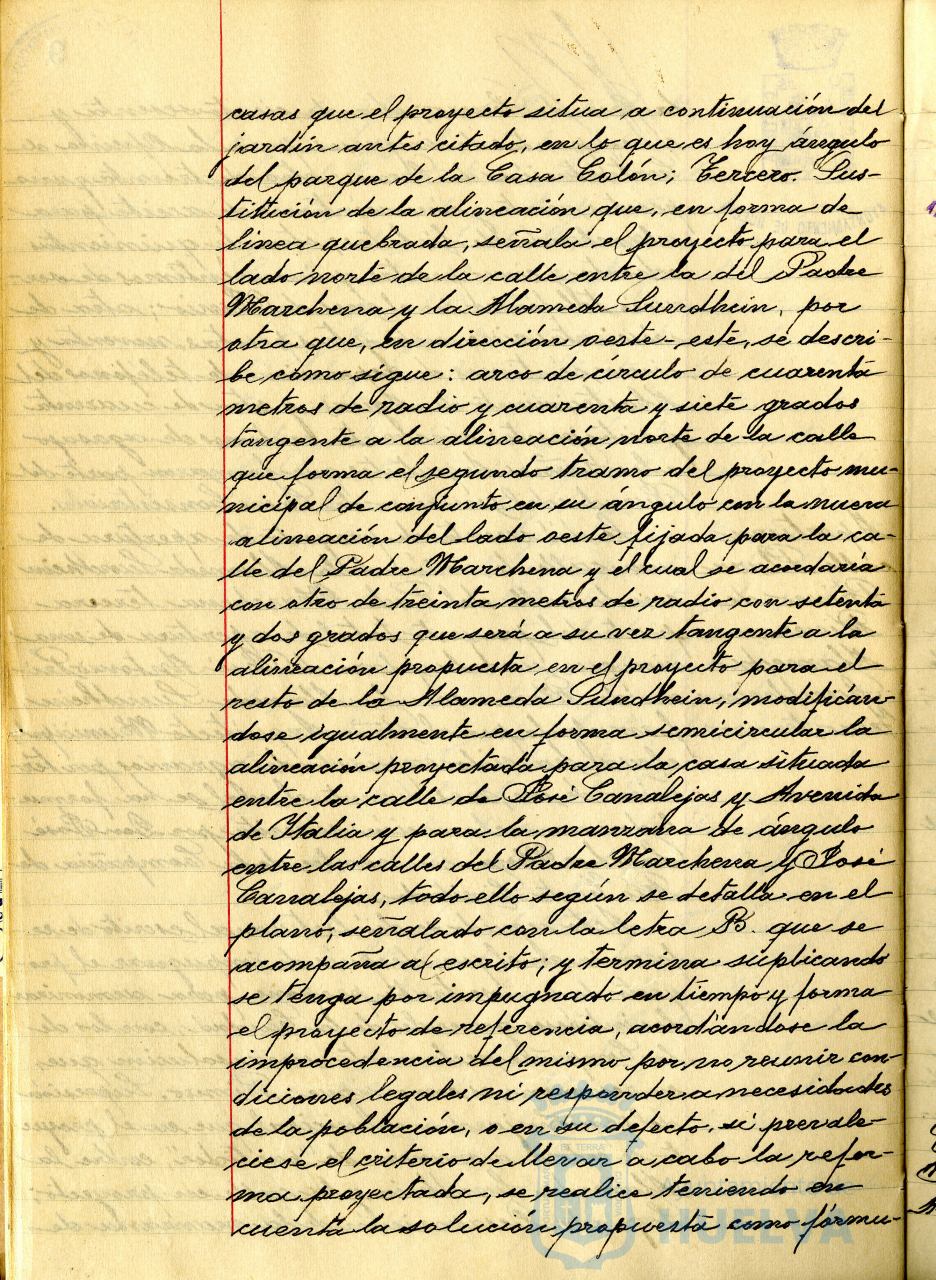 casas que el proyecto situa a continuación del
jardín antes citado, en lo que es hoy ángulo
del parque de la Casa Colón; Tercero. Sus-
titución de la alineación que, en forma de
linea quebrada, señala el proyecto para el
lado norte de la calle entre la del Padre
Marchena y la Alameda Suendhein, por
otra que, en dirección oeste-este, se descri-
be como sigue: arco de círculo de cuarenta
metros de radio y cuarenta y siete grados
tangente a la alineación norte de la calle
que forma el segundo tramo del proyecto mu-
nicipal de conjunto en su ángulo con la nueva
alineación del lado oeste fijada para la ca-
lle del Padre Marchena y el cual se acordaría
con otro de treinta metros de radio con setenta
y dos grados que será a su vez tangente a la
alineación propuesta en el proyecto para el
resto de la Alameda Sundhein, modificán-
dose igualmente en forma semicircular la
alineación proyectada para la casa situada
entre la calle de José Canalejas y Avenida
de Italia y para la manzana de ángulo
entre las calles del Padre Marchena y José
Canalejas, todo ello según se detalla en el
plano, señalado con la letra B. que se
acompaña al escrito; y termina suplicando
se tenga por impugnado en tiempo y forma
el proyecto de referencia, acordándose la
improcedencia del mismo por no reunir con-
diciones legales ni responder a necesidades
de la población, o en su defecto, si prevale-
ciese el criterio de llevar a cabo la refor-
ma proyectada, se realice teniendo en
cuenta la solución propuesta como fórmu-
HUELVA